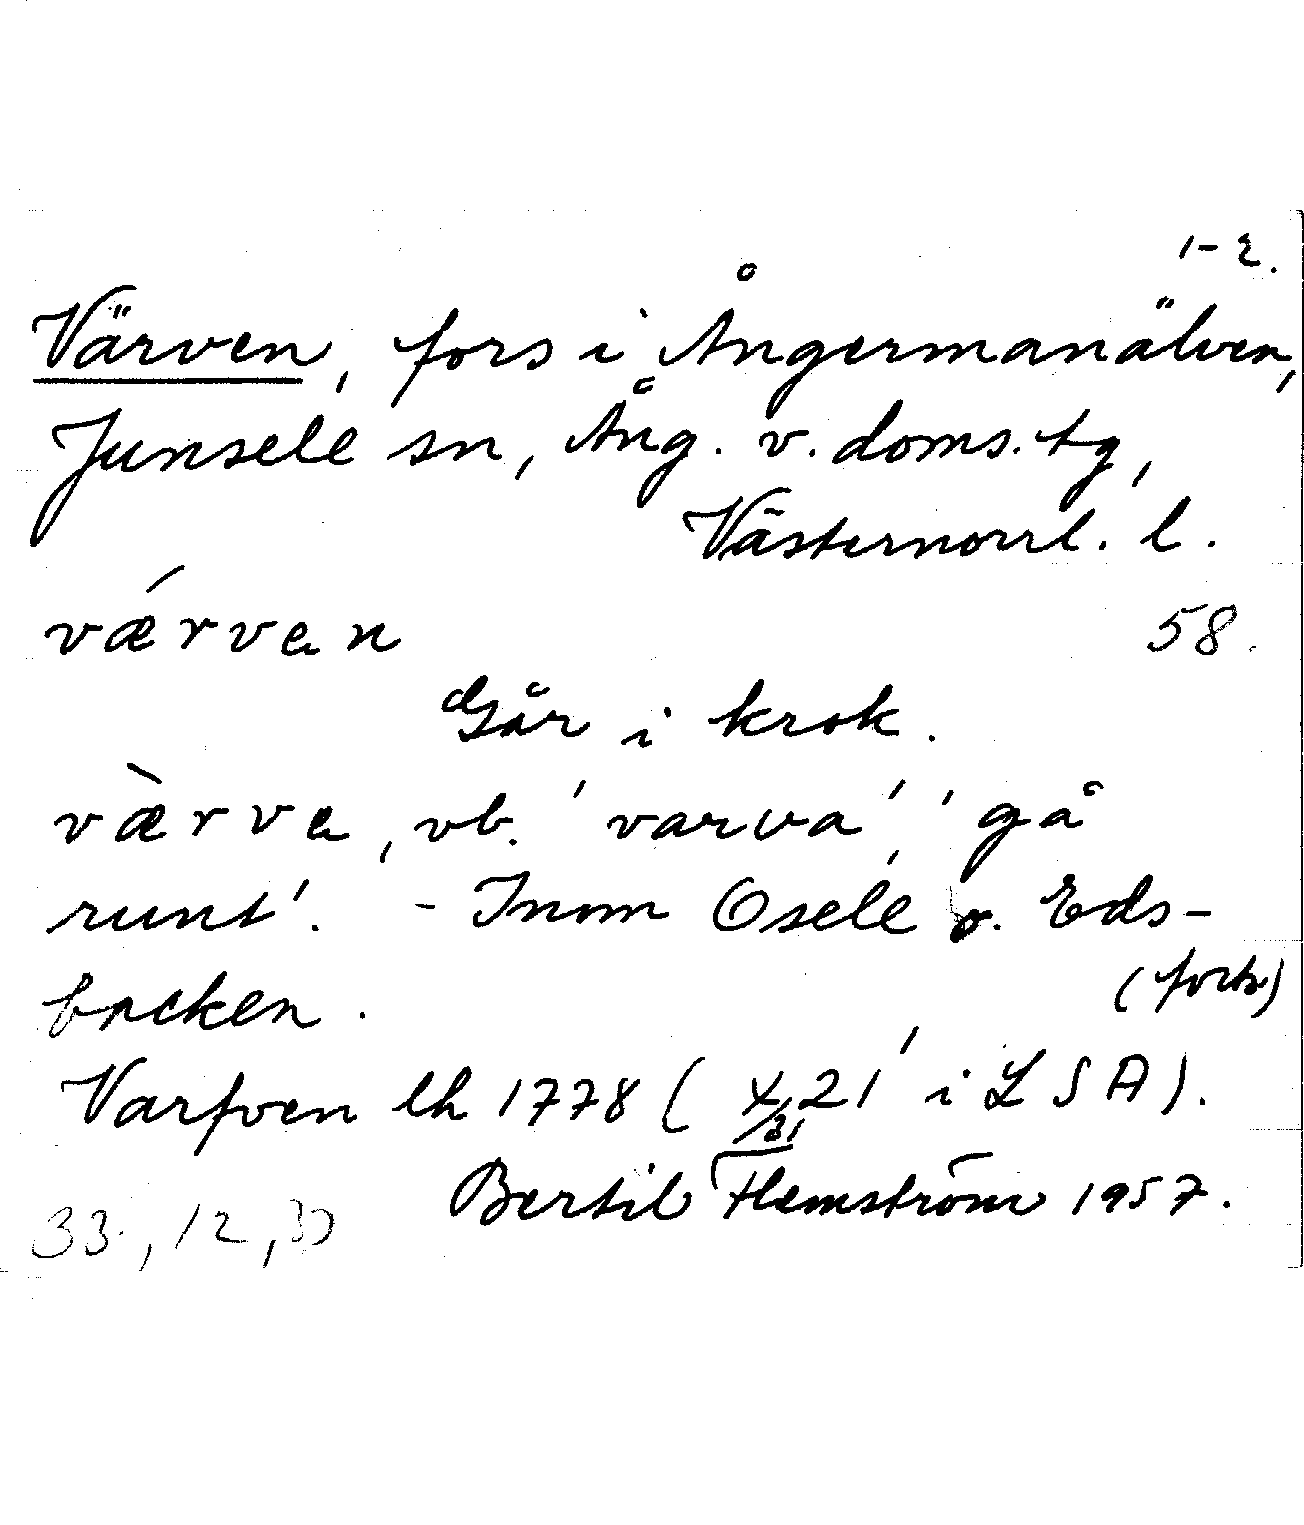 1-2.
Värven, fors i Ångermanälven,
Junsele sn, Ång. v. doms. tg,
Västernorrl. l.
vǽrvan 58.
Går i krok.
væ̀rva, vb. 'varva', 'gå
runt'. - Inom Osele o. Eds-
backen. (forts)
Varfven lh 1778 (X 21' i LSA).
/31
Bertil Flemström 1957.
33, 12, 30